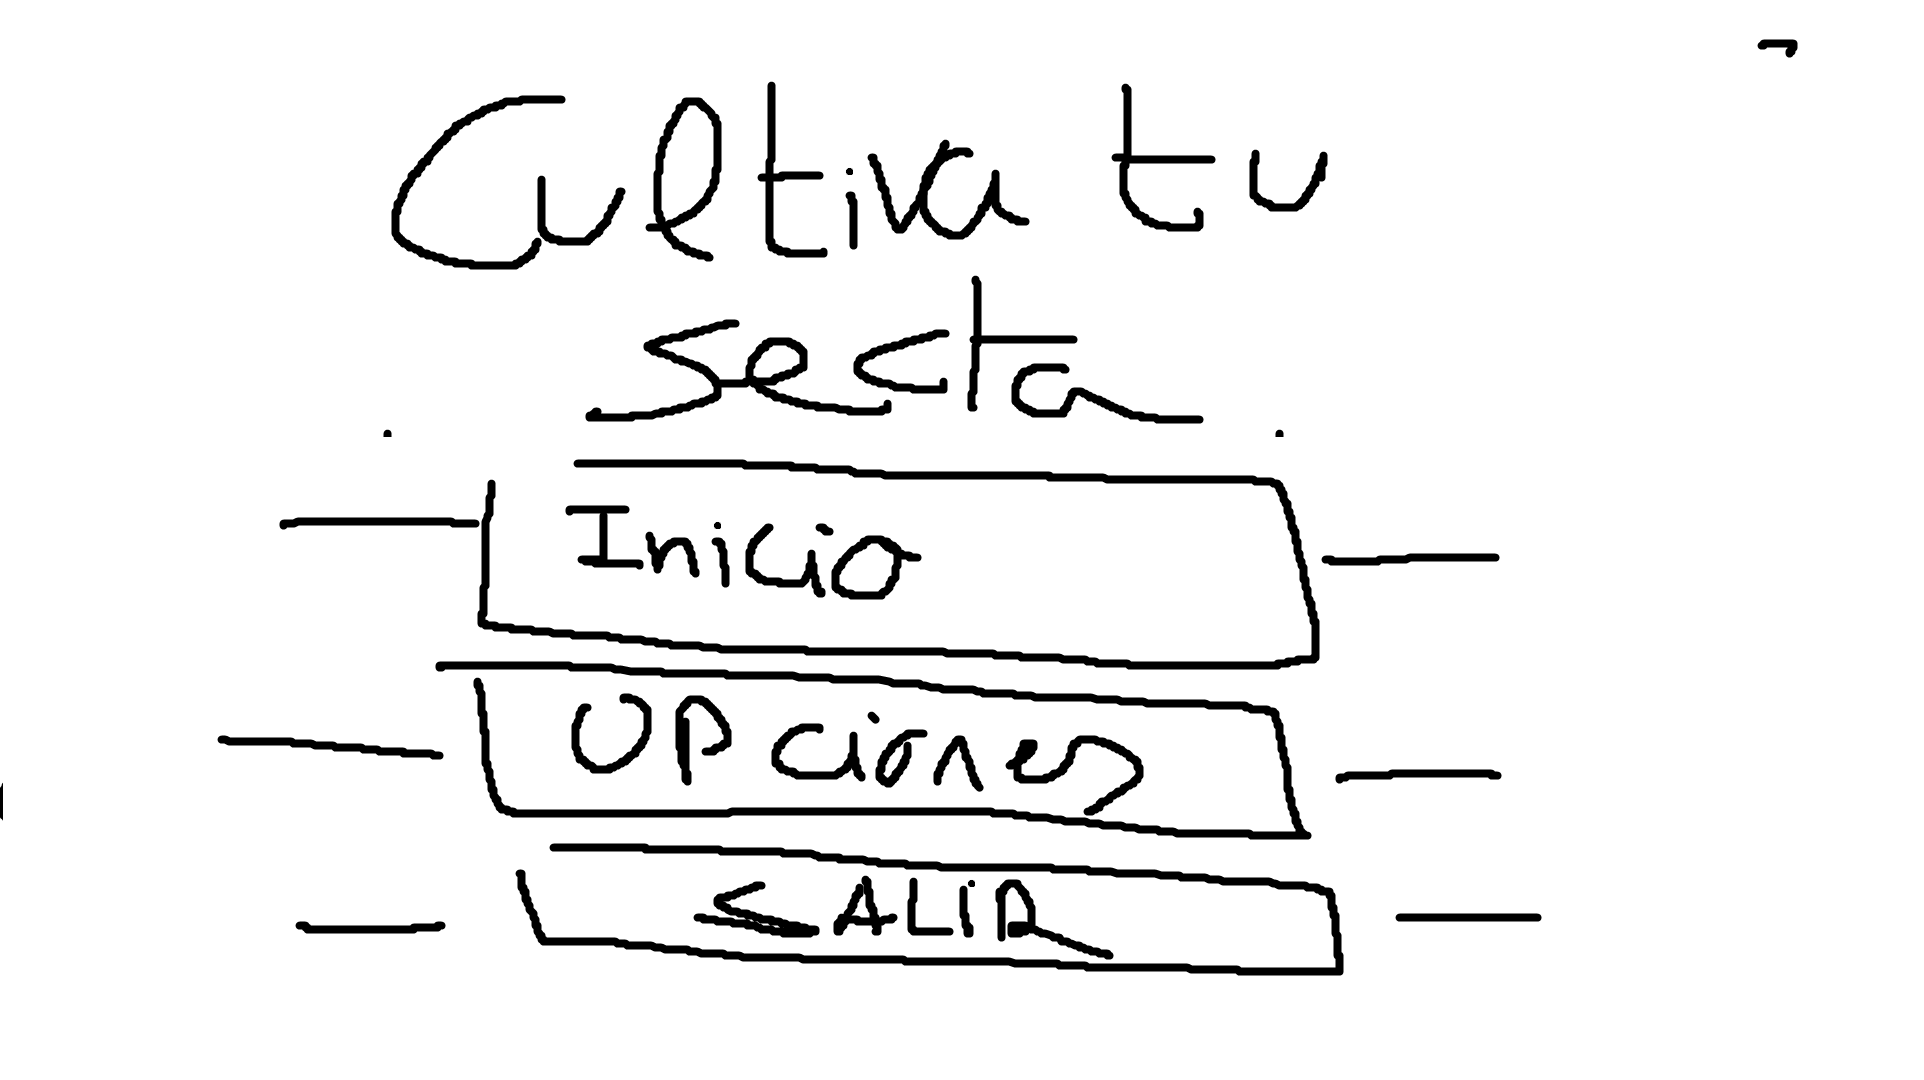 Cultiva tu
secta
Inicio
OPciones
SALIR